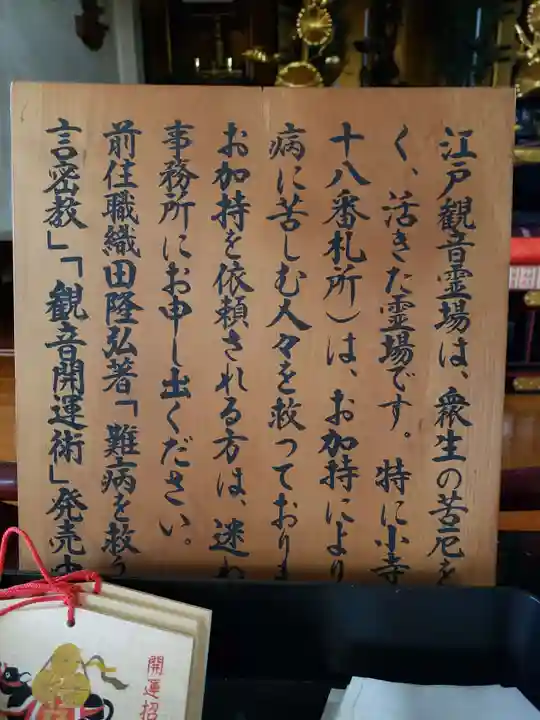 江戸観音霊場は、衆生の苦厄を
く、活きた霊場です。特に小寺
十八番札所)は、お加持により
病に苦しむ人々を救っており
お加持を依頼される方は、迷わ
事務所にお申し出ください。
前住職織田隆弘著「難病を救う
言密教」「観音開運術」発売
開運招